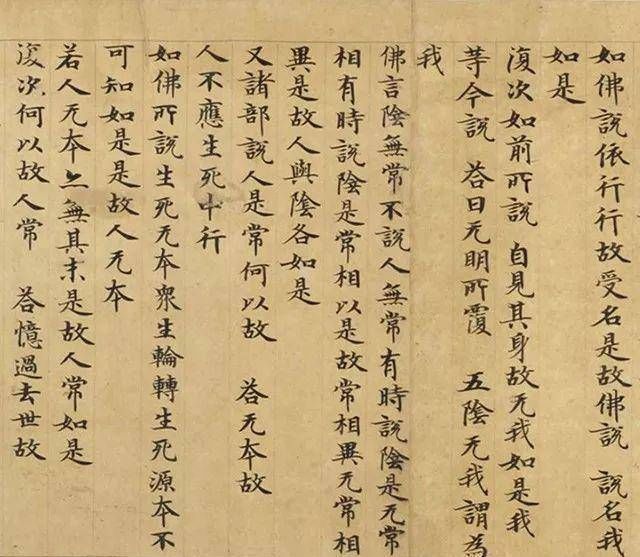 如佛說依行行故受名是故佛說 說名我
如是
復次如前所說 自見其身故无我如是我
等今說 荅曰无明所覆 五陰无我謂為
我
佛言陰無常不說人無常有時說陰是无常
相有時說陰是常相以是故常相異无常相
異是故人與陰各如是
又諸部說人是常何以故 荅无本故
人不應生死中行
如佛所說生死无本衆生輪轉生死源本不
可知如是是故人无本
若人无本亦無其末是故人常如是
復次何以故人常 荅憶過去世故